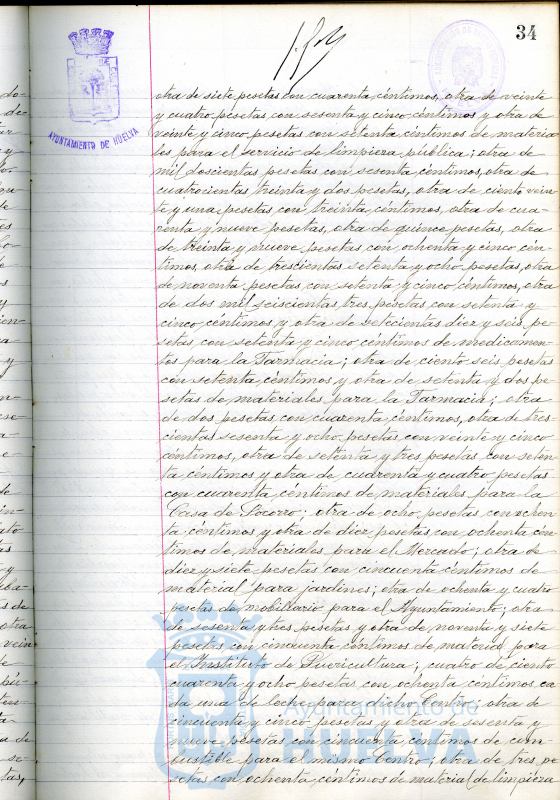 34
AYUNTAMIENTO DE HUELVA
otra de siete pesetas con cuarenta céntimos, otra de veinte
y cuatro pesetas con sesenta y cinco céntimos y otra de
veinte y cinco pesetas con setenta céntimos de materia
les para el servicio de limpieza pública; otra de
mil doscientas pesetas con sesenta céntimos, otra de
cuatrocientas treinta y dos pesetas, otra de ciento vein
te y una pesetas con treinta céntimos, otra de cua-
renta y nueve pesetas, otra de quince pesetas, otra
de treinta y nueve pesetas con ochenta y cinco cén-
timos, otra de trescientas setenta y ocho pesetas, otra
de noventa pesetas con setenta y cinco céntimos, otra
de dos mil seiscientas tres pesetas con setenta y
cinco céntimos y otra de setecientas diez y seis pe
setas con setenta y cinco céntimos de medicamen-
tos para la Farmacia; otra de ciento seis pesetas
con setenta céntimos y otra de setenta y dos pe
setas de materiales para la Farmacia; otra
de dos pesetas con cuarenta céntimos, otra de tres
cientas sesenta y ocho pesetas con veinte y cinco
céntimos, otra de setenta y tres pesetas con seten-
ta céntimos y otra de cuarenta y cuatro pesetas
con cuarenta céntimos de materiales para la
Casa de Socorro; otra de ocho pesetas con ochen
ta céntimos y otra de diez pesetas con ochenta cén
timos de materiales para el Mercado; otra de
diez y siete pesetas con cincuenta céntimos de
material para jardines; otra de ochenta y cuatro
pesetas de mobiliario para el Ayuntamiento; otra
de sesenta y tres pesetas y otra de noventa y siete
pesetas con cincuenta céntimos de material para
el Instituto de Puericultura; cuatro de ciento
cuarenta y ocho pesetas con ochenta céntimos ca
da una de leche para dicho Centro; otra de
cincuenta y cinco pesetas y otra de sesenta y
nueve pesetas con cincuenta céntimos de com-
bustible para el mismo Centro; otra de tres pe
setas con ochenta céntimos de material de limpieza
Ayuntamiento de
HUELVA